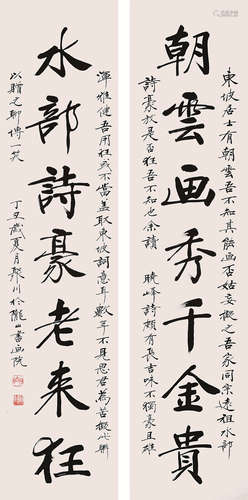 東坡居士有朝雲吾不知其能画否姑妄擬之吾家同宗遠祖水部
朝雲画秀千金貴
詩豪放是否狂吾不知也余讀 曉峰詩頗有長吉味不獨豪且雄
渾雅健吾用狂或不當蓋取東坡詞意耳數年不見思君為苦擬此聯
水部詩豪老来狂
以贈之聊博一笑
丁丑歲夏月 川於 山書画院